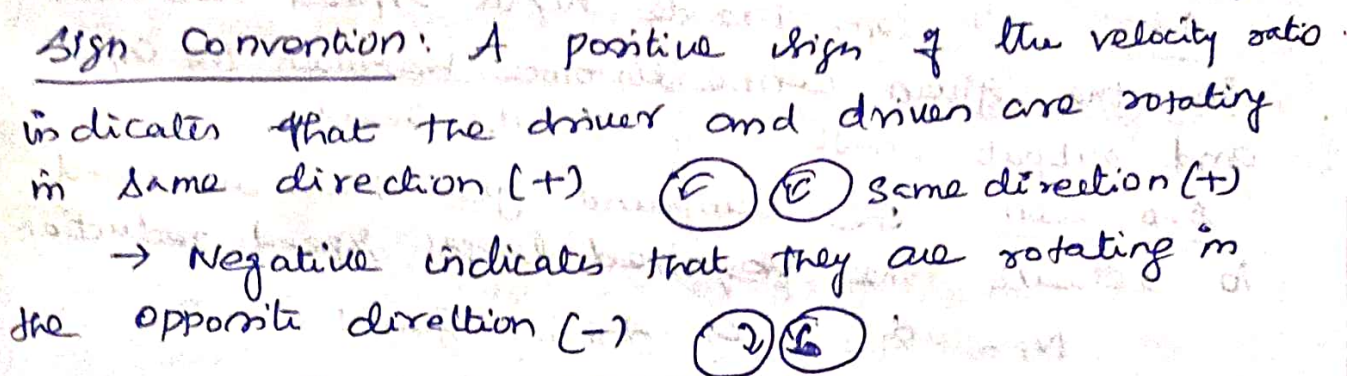 Sign Convention: A positive sign of the velocity ratio.
indicates that the driver and driven are rotating
in same direction (+) same direction (+)
→ Negative indicates that they are rotating in
the opposite direction (-)